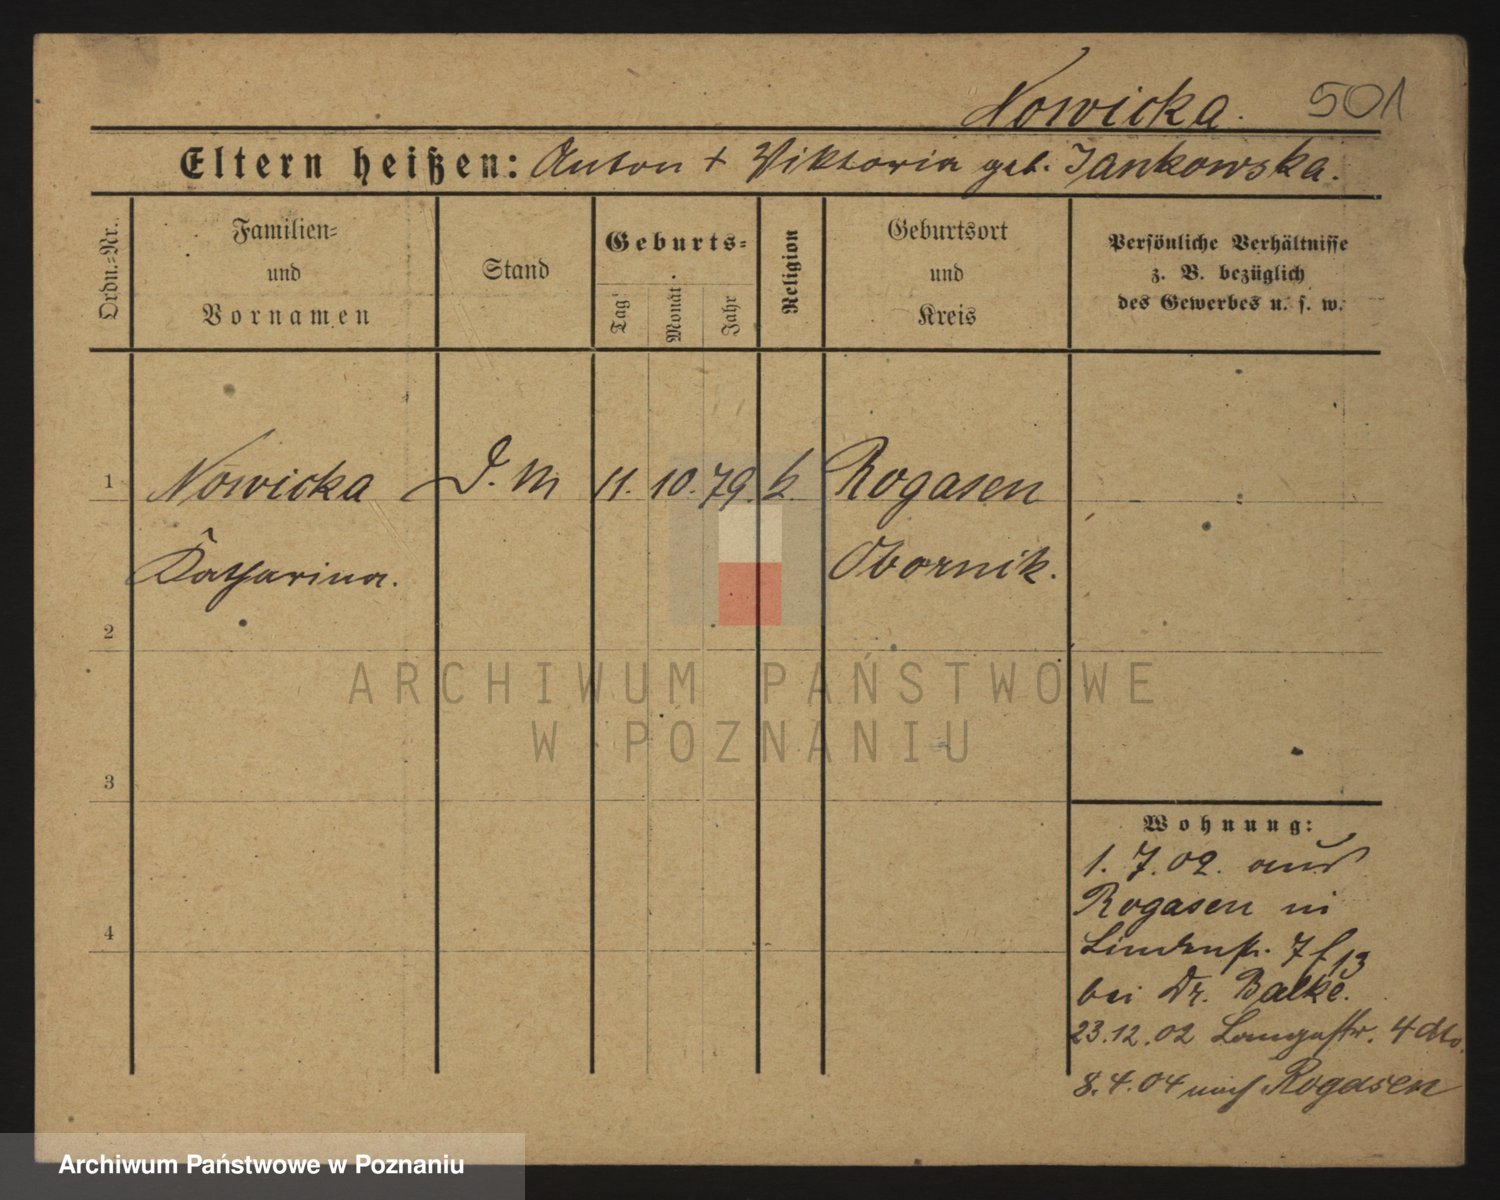 Nowicka. 501
Eltern heißen: Anton + Viktoria geb. Jankowska.
Ordn.-Nr.
Familien-
und
Vornamen
Stand
Geburts-
Tag
Monat
Jahr
Religion
Geburtsort
und
Kreis
Persönliche Verhältnisse
z. B. bezüglich
des Gewerbes u. s. w.
1 Nowicka D. M 11. 10. 79. k. Rogasen
Katharina. Obornik.
2
ARCHIWUM PAŃSTWOWE
W POZNANIU
3
Wohnung:
1. 7. 02. aus
Rogasen in
4
Lindenstr. 7 f 13
bei Dr. Balke.
23.12.02 Langestr. 4 dto.
8.4.04 nach Rogasen
Archiwum Państwowe w Poznaniu